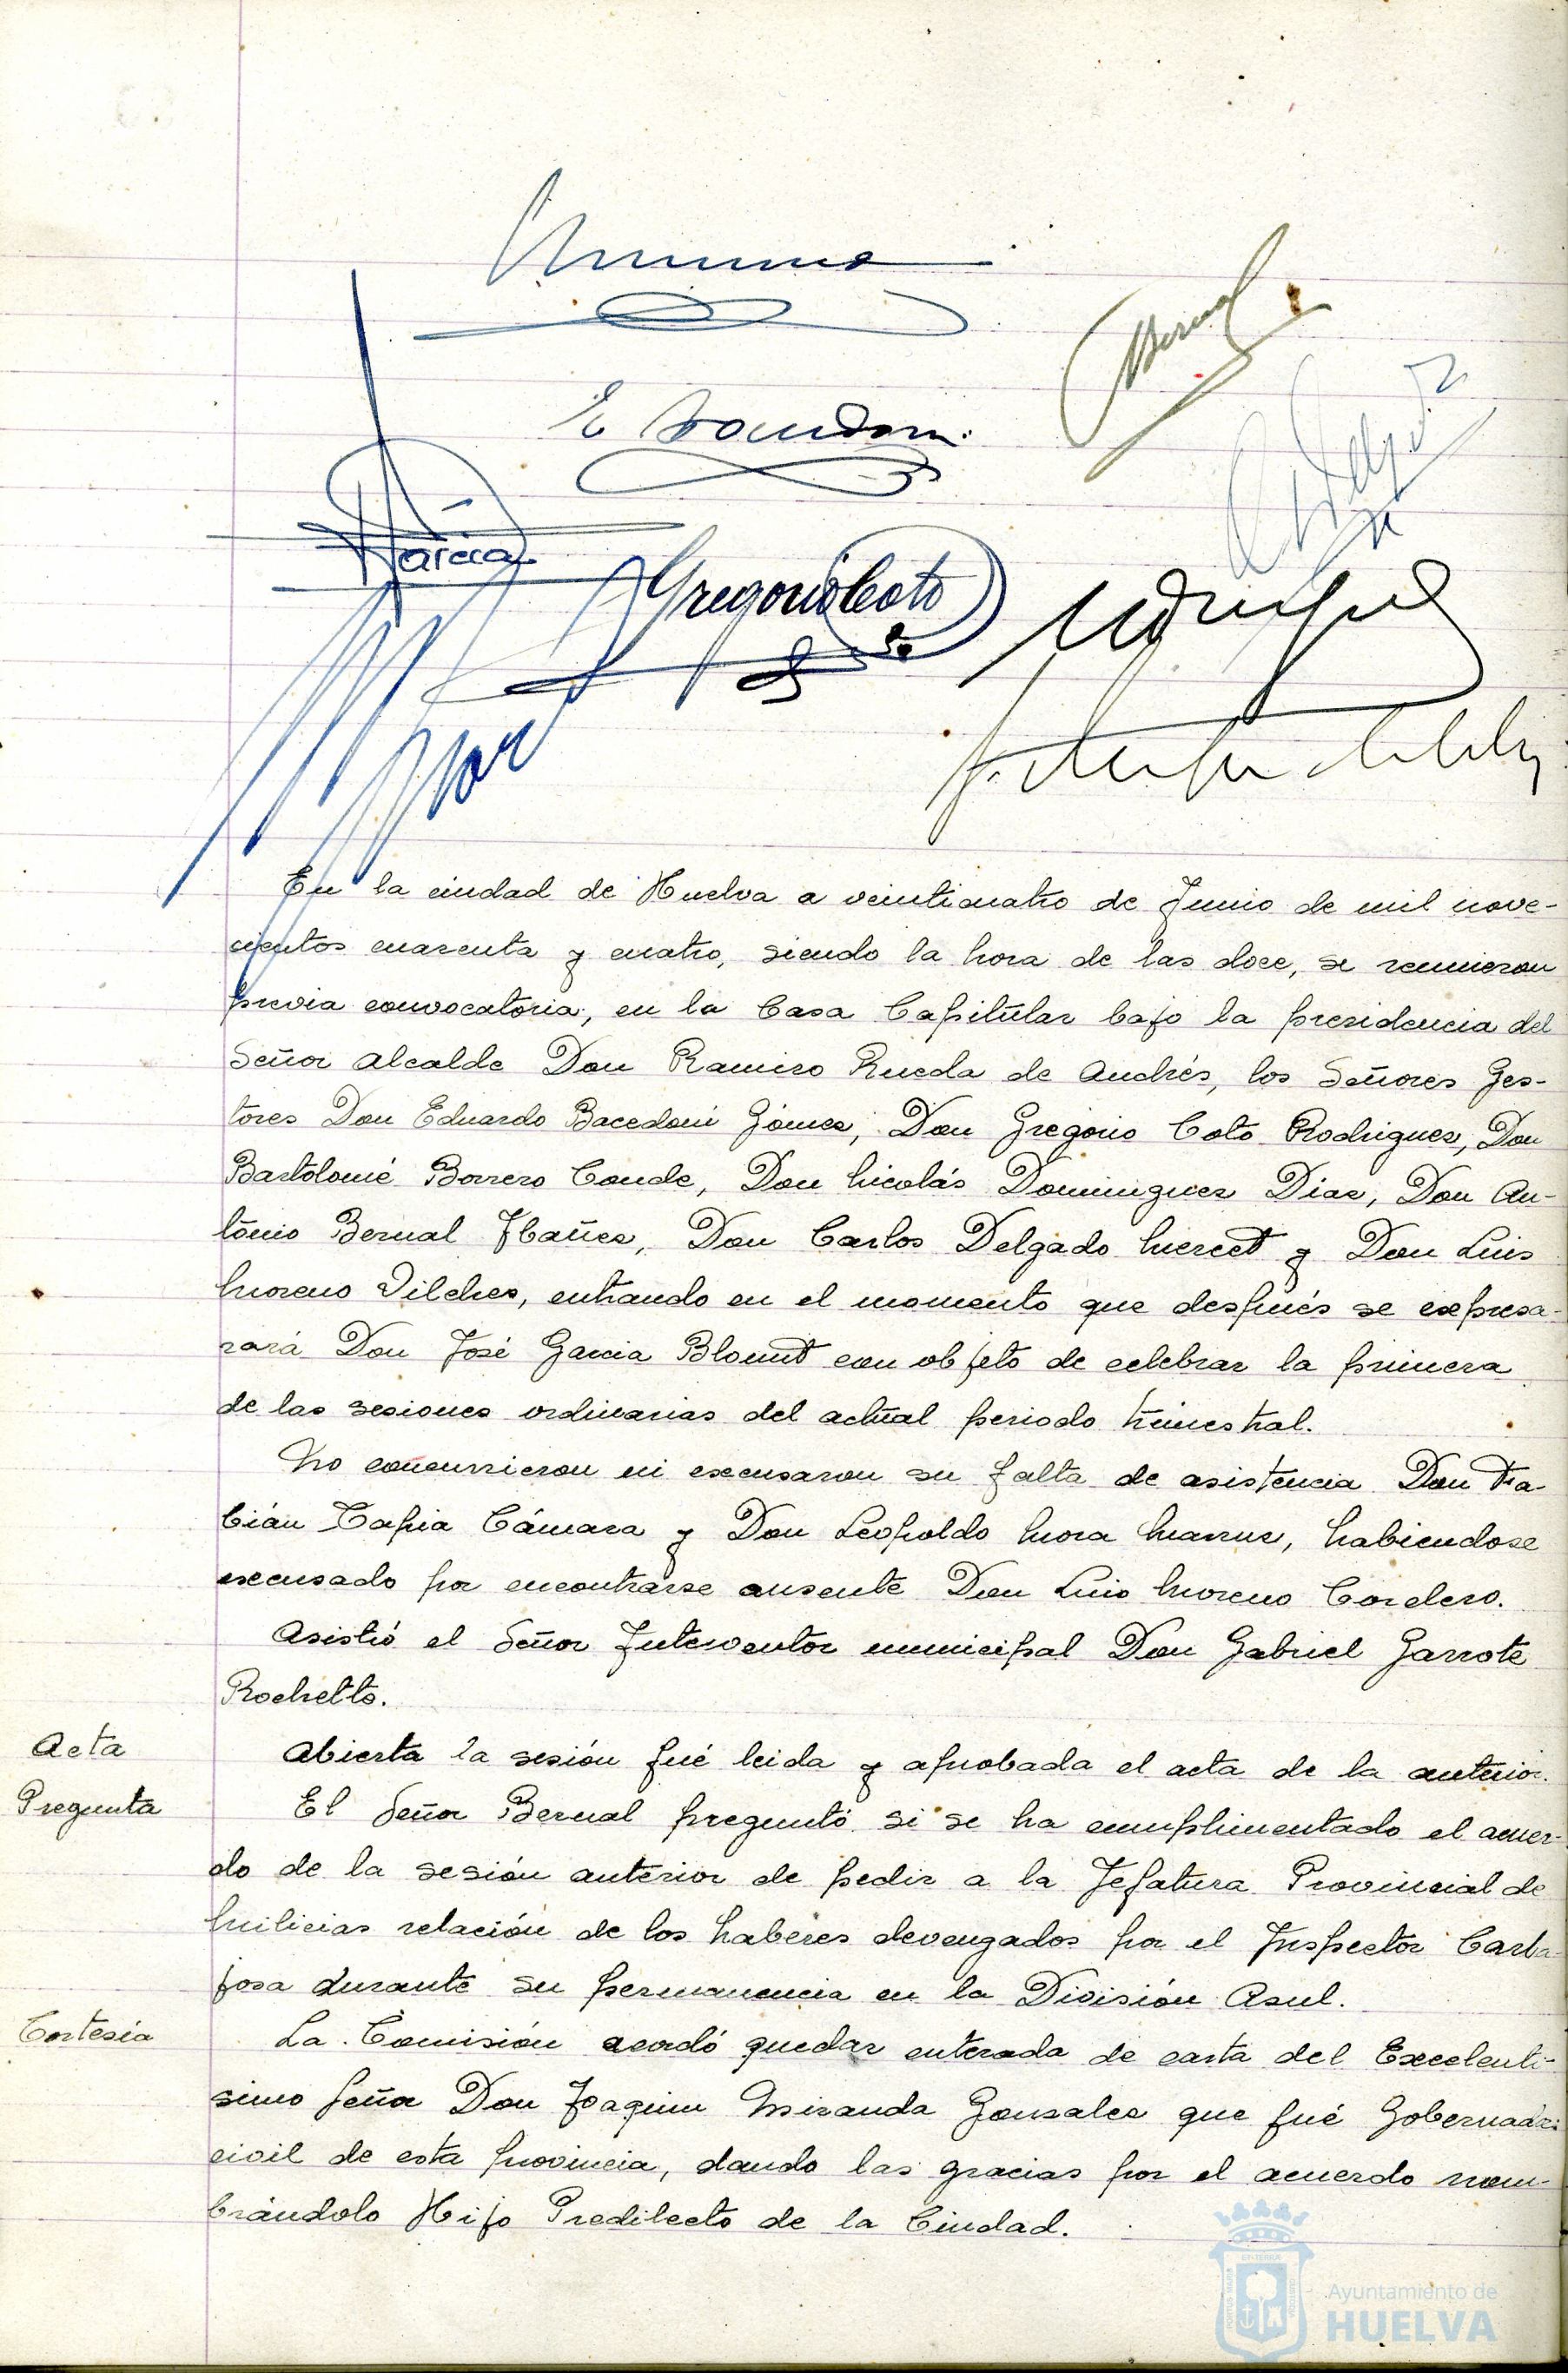 Bernal
Garcia
Gregorio Coto
En la ciudad de Huelva a veinticuatro de Junio de mil nove-
cientos cuarenta y cuatro, siendo la hora de las doce, se reunieron
previa convocatoria, en la Casa Capitular bajo la presidencia del
Señor Alcalde Don Ramiro Rueda de Andrés, los Señores Ges-
tores Don Eduardo Bacedoni Gómez, Don Gregorio Coto Rodriguez, Don
Bartolomé Borrero Conde, Don Nicolás Dominguez Diaz, Don An-
tonio Bernal Ibañez, Don Carlos Delgado Mercet y Don Luis
Moreno Vilches, entrando en el momento que después se expresa-
rará Don José Garcia Blount con objeto de celebrar la primera
de las sesiones ordinarias del actual periodo trimestral.
No concurrieron ni excusaron su falta de asistencia Don Fa-
bián Tapia Cámara y Don Leopoldo Mora, habiendose
excusado por encontrarse ausente Don Luis Moreno Cordero.
Asistió el Señor Interventor municipal Don Gabriel Garrote
Rochetto.
Acta
Abierta la sesión fué leida y aprobada el acta de la anterior.
Pregunta
El Señor Bernal preguntó si se ha cumplimentado el acuer-
do de la sesión anterior de pedir a la Jefatura Provincial de
Milicias relación de los haberes devengados por el Inspector Carba-
josa durante su permanencia en la División Azul.
Cortesía
La Comisión acordó quedar enterada de carta del Excelenti-
simo Señor Don Joaquin Miranda Gonzalez que fué Gobernador
civil de esta provincia, dando las gracias por el acuerdo nom-
brándolo Hijo Predilecto de la Ciudad.
Ayuntamiento de
HUELVA